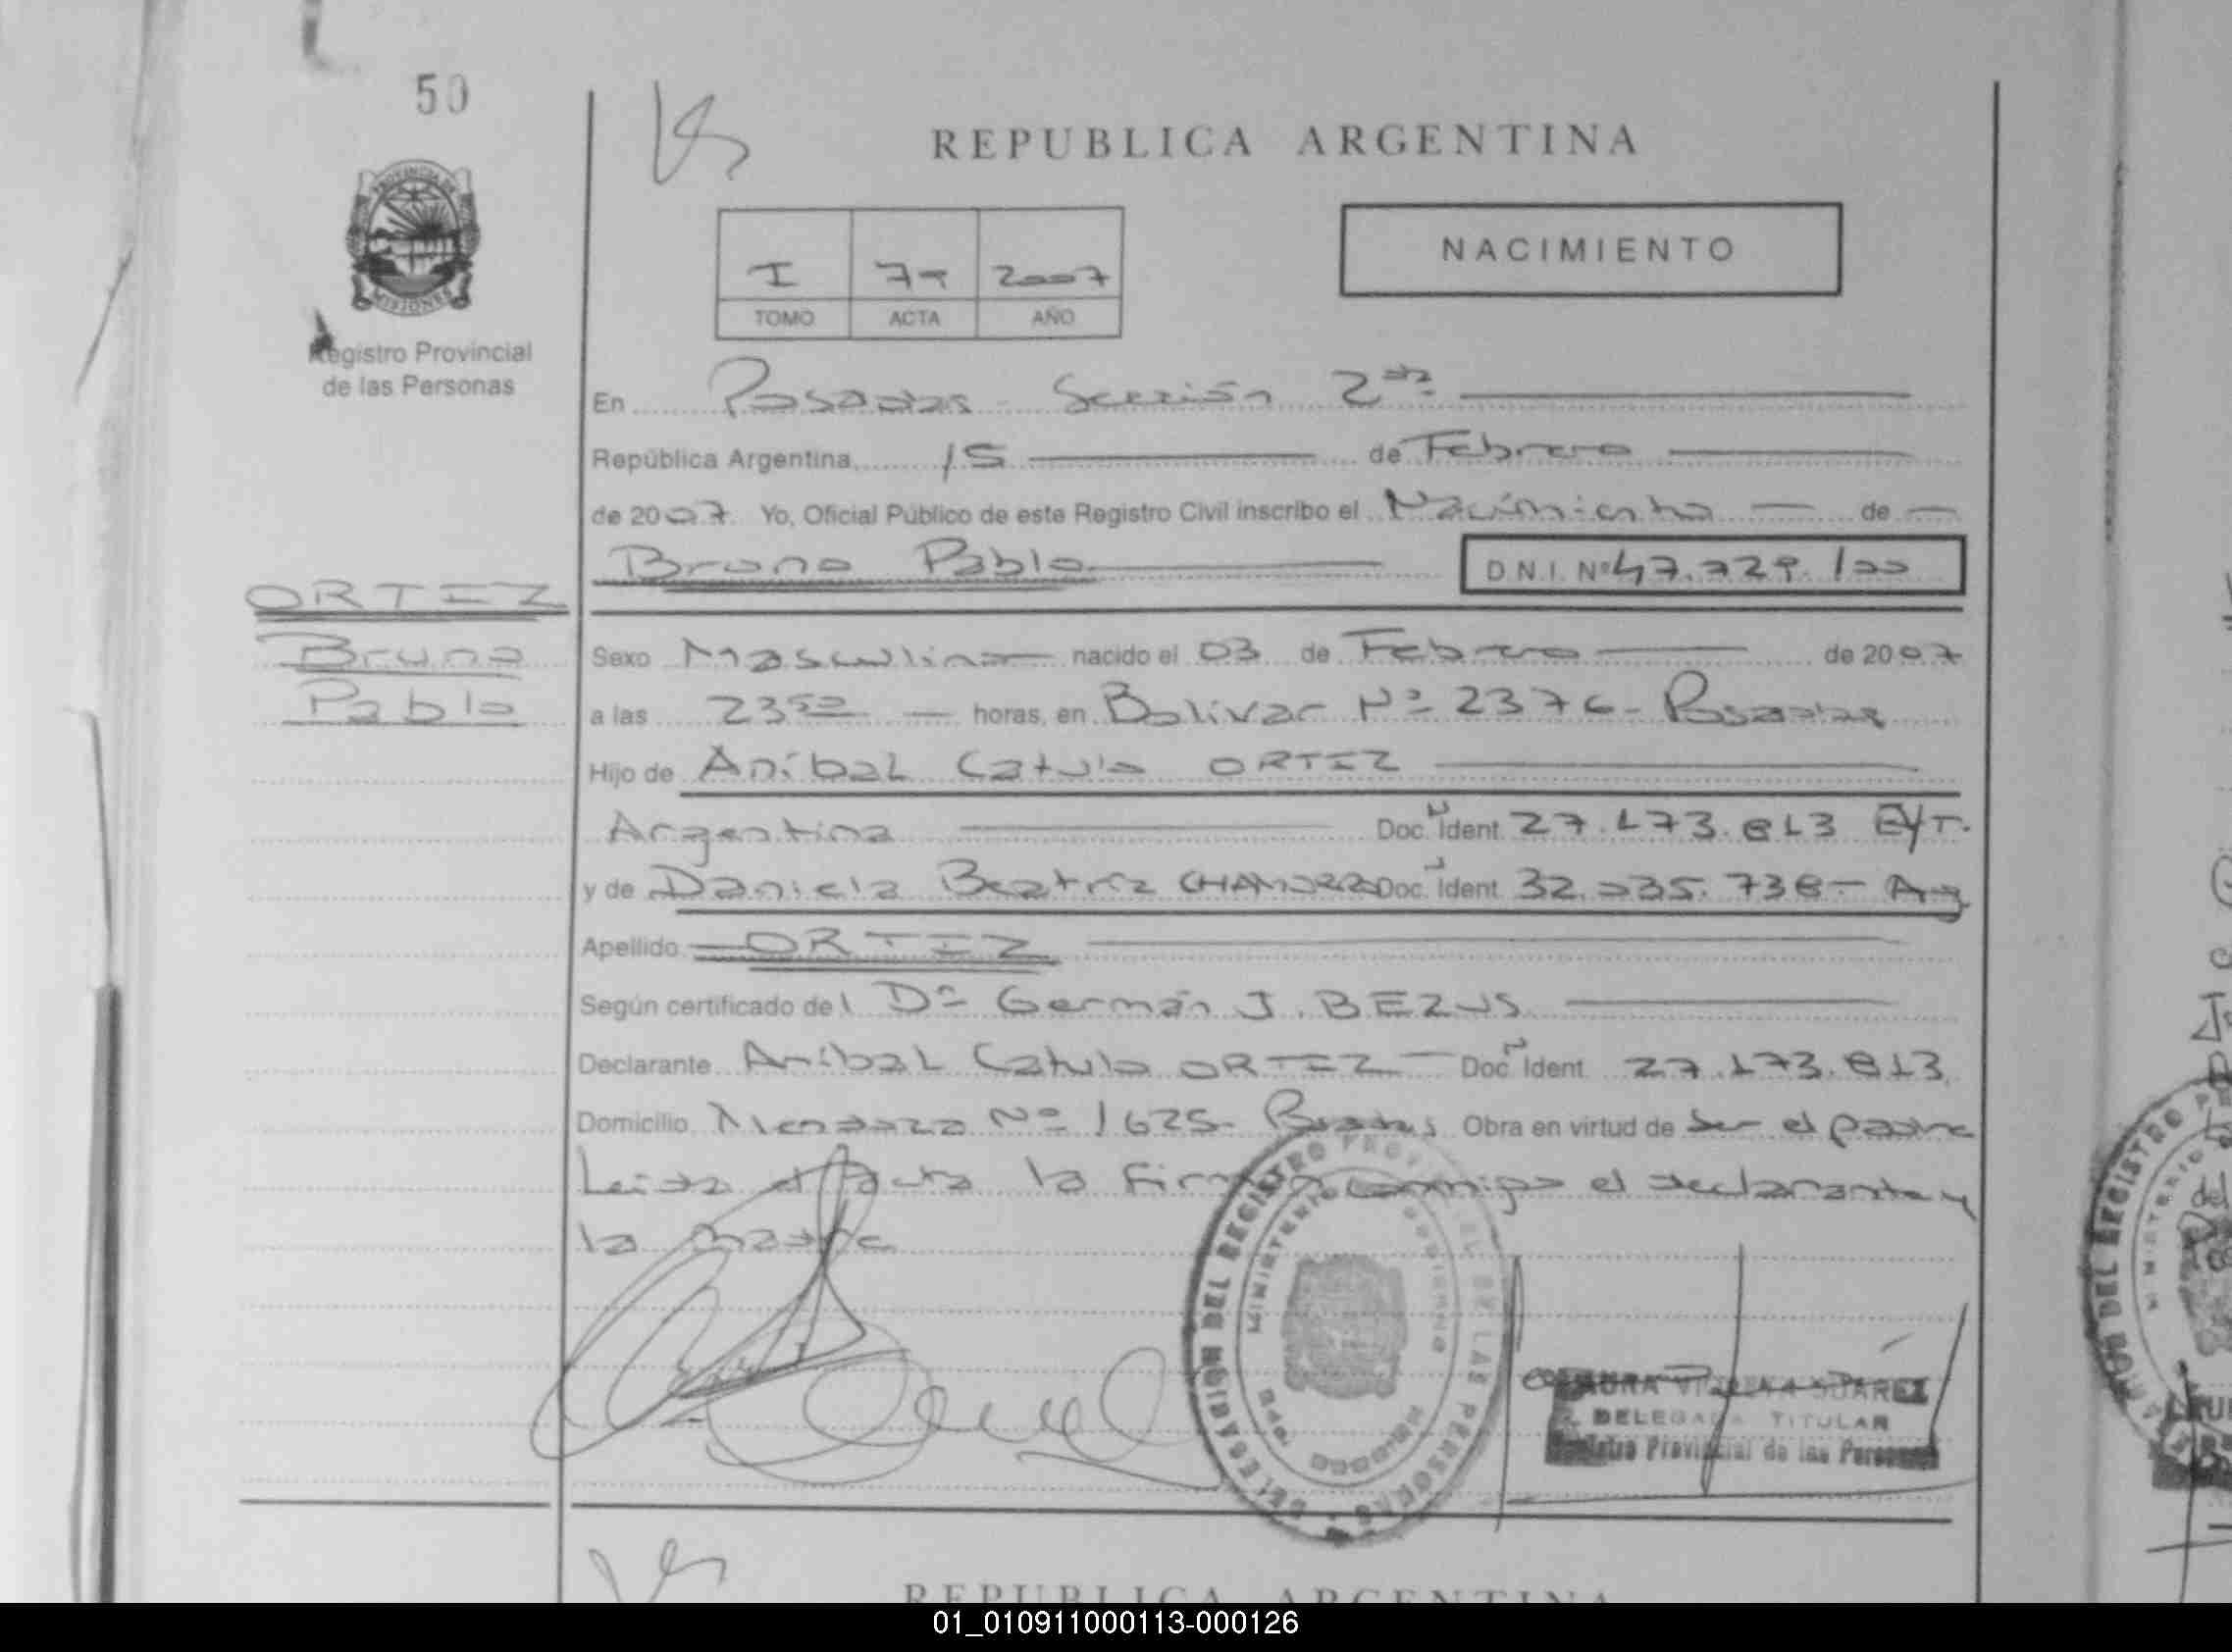 50
REPUBLICA ARGENTINA
PROVINCIA DE
MISIONES
Registro Provincial
de las Personas
NACIMIENTO
I 2007
TOMO ACTA AÑO
En Posadas Sección 2da
República Argentina, 15 de Febrero
de 2007 Yo, Oficial Público de este Registro Civil inscribo el Nacimiento de
Bruno Pablo D.N.I. Nº 47.729.100
ORTIZ
Bruno
Pablo
Sexo Masculino nacido el 03 de Febrero de 2007
a las 23 50 horas, en Bolivar Nº 2376 - Posadas
Hijo de Aníbal Catulo ORTIZ
Argentina Doc. Ident. 27.173.813
y de Daniela Beatríz CHAMORRO Doc. Ident. 32.035.738 - Arg
Apellido ORTIZ
Según certificado del Dr Germán J. BEZUS
Declarante Aníbal Catulo ORTIZ - Doc. Ident. 27.173.813
Domicilio Mendoza Nº 1625 - Posadas Obra en virtud de ser el padre
Leida el acta la firman conmigo el declarante y
la madre
DELEGACION DEL REGISTRO PROVINCIAL DE LAS PERSONAS
MINISTERIO DE GOBIERNO
SUAREZ
DELEGADA TITULAR
Registro Provincial de las Personas
REPUBLICA ARGENTINA
01_010911000113-000126